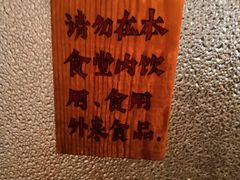 请勿在本
食堂内饮
用、食用
外来食品.